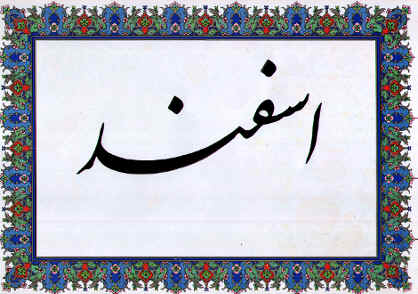 اسفند